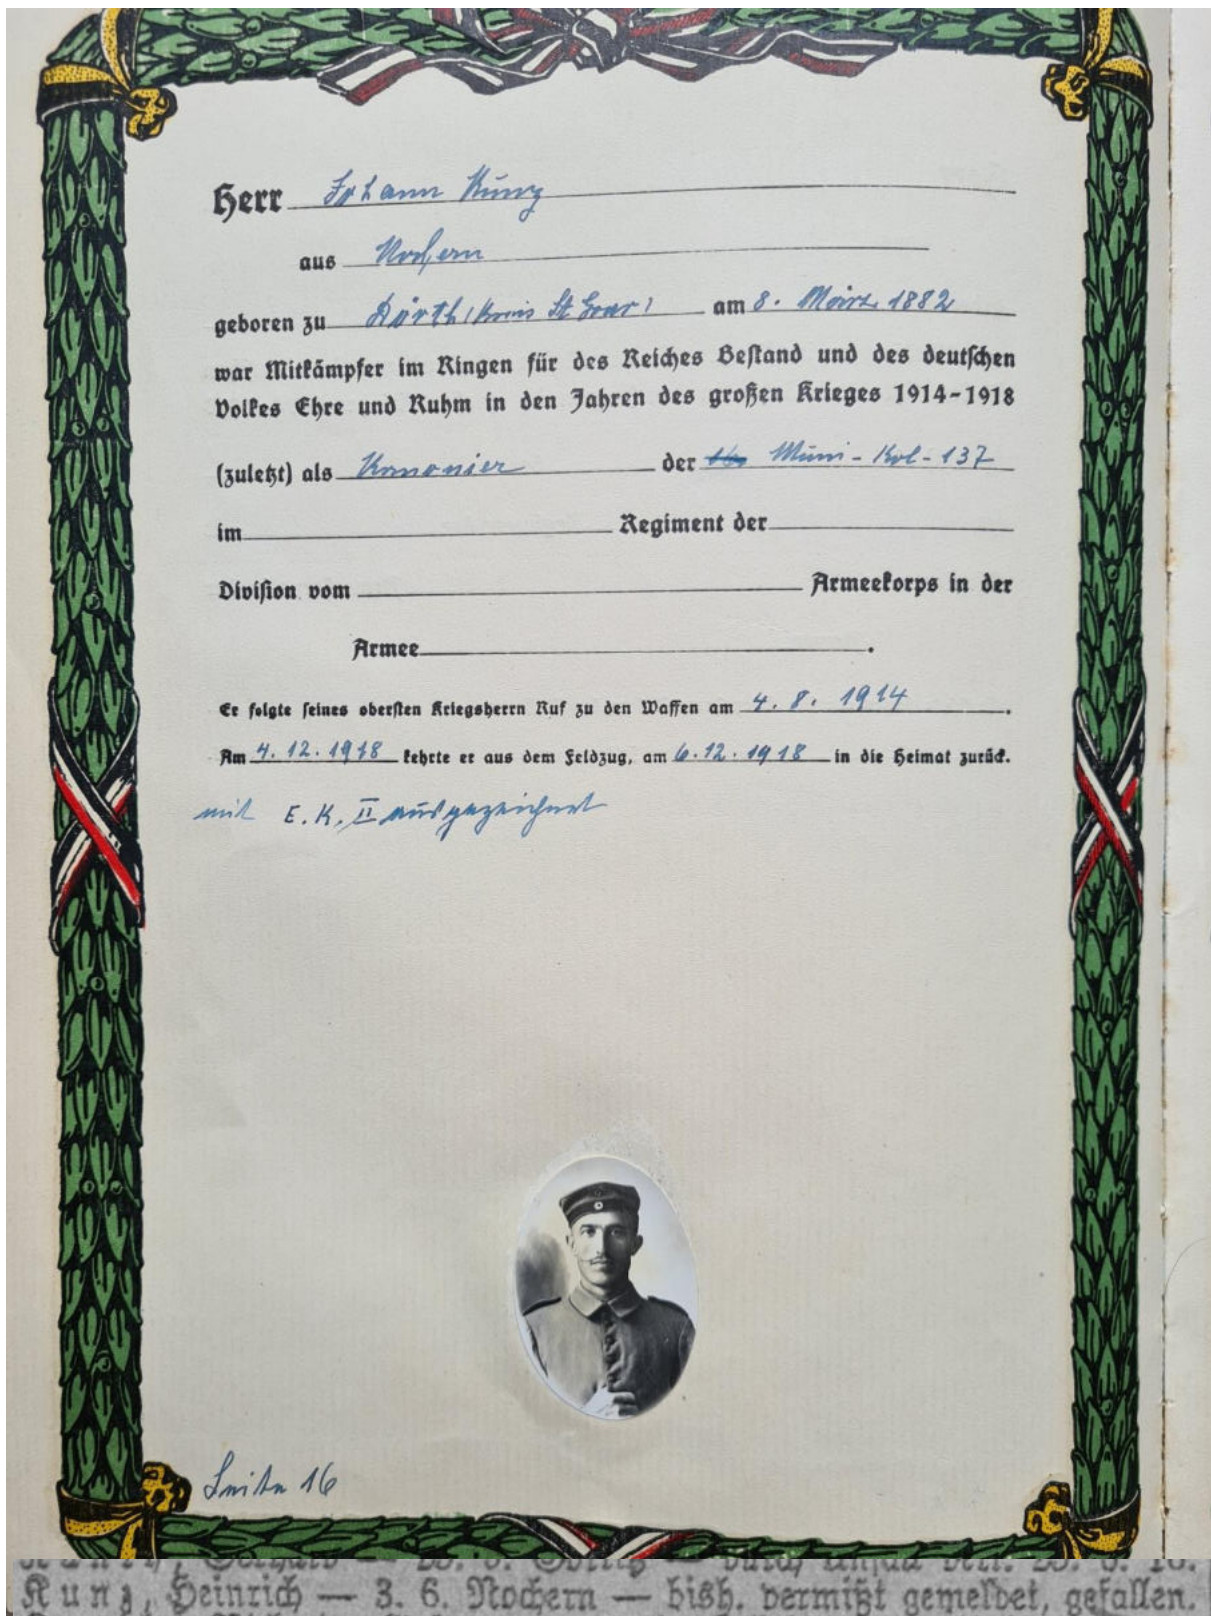 Herr Johann Kunz
aus Nochern
geboren zu Dörth (Kreis St Goar) am 8. März 1882
war Mitkämpfer im Ringen für des Reiches Bestand und des deutschen
Volkes Ehre und Ruhm in den Jahren des großen Krieges 1914-1918
(zuletzt) als Kanonier der Muni-Kol-137
im Regiment der
Division vom Armeekorps in der
Armee .
Er folgte seines obersten Kriegsherrn Ruf zu den Waffen am 4. 8. 1914 .
Am 4. 12. 1918 kehrte er aus dem Feldzug, am 6. 12. 1918 in die Heimat zurück.
mit E. K. II ausgezeichnet
Seite 16
Kunz, Heinrich — 3. 6. Nochern — bish. vermißt gemeldet, gefallen.